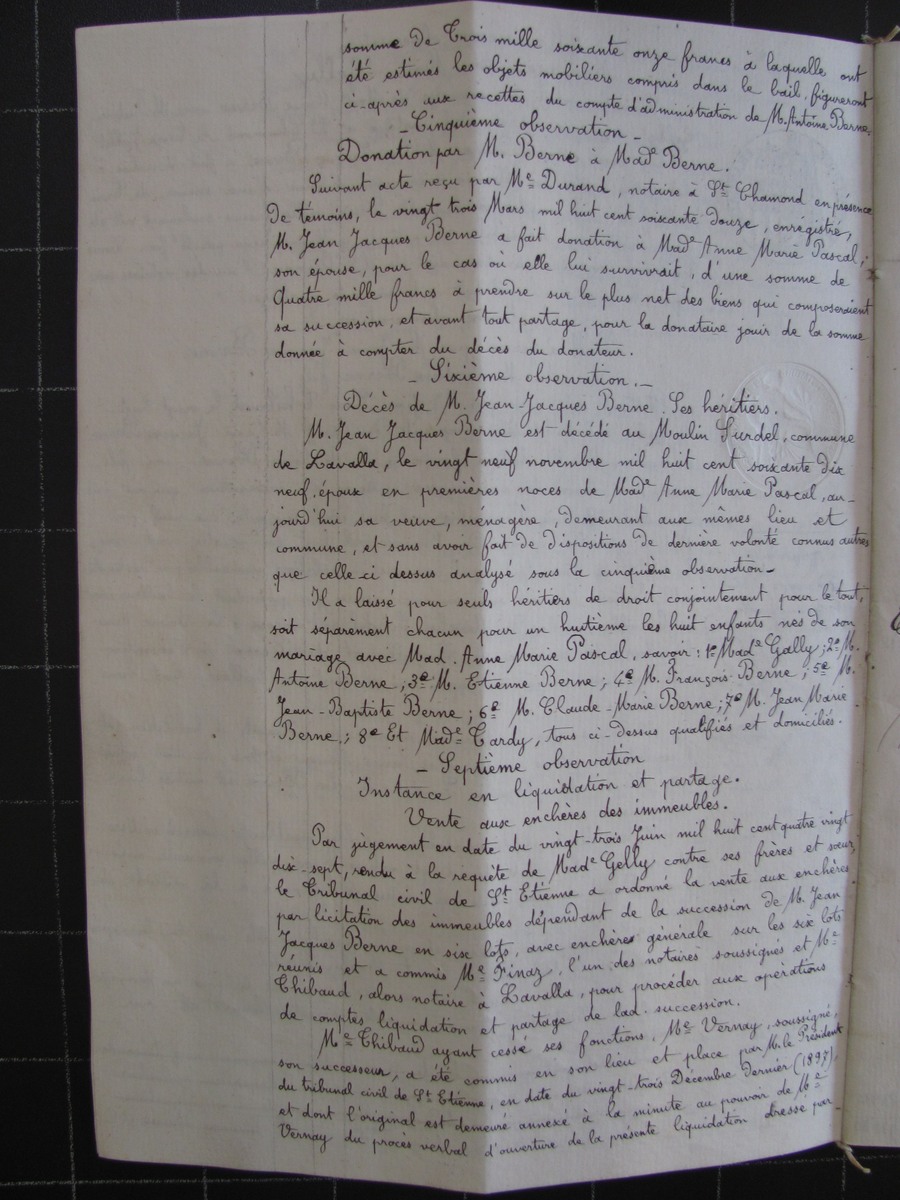 somme de Trois mille soixante onze francs à laquelle ont
été estimés les objets mobiliers compris dans le bail, figureront
ci-après aux recettes du compte d'administration de M. Antoine Berne.
- Cinquième observation -
Donation par M. Berne à Made Berne.
Suivant acte reçu par Me Durand, notaire à St Chamond en présence
de témoins, le vingt trois Mars mil huit cent soixante douze, enrégistré,
M. Jean Jacques Berne a fait donation à Made Anne Marie Pascal,
son épouse, pour le cas où elle lui survivrait, d'une somme de
Quatre mille francs à prendre sur le plus net des biens qui composeraient
sa succession, et avant tout partage, pour la donataire jouir de la somme
donnée à compter du décès du donateur.
- Sixième observation. -
Décès de M. Jean-Jacques Berne. Ses héritiers.
M. Jean Jacques Berne est décédé au Moulin Surdel, commune
de Lavalla, le vingt neuf novembre mil huit cent soixante dix
neuf, époux en premières noces de Made Anne Marie Pascal, au-
jourd'hui sa veuve, ménagère, demeurant aux mêmes lieu et
commune, et sans avoir fait de dispositions de dernière volonté connus autres
que celle ci dessus analysé sous la cinquième observation -
Il a laissé pour seuls héritiers de droit conjointement pour le tout,
soit séparèment chacun pour un huitième les huit enfants nés de son
mariage avec Mad. Anne Marie Pascal, savoir: 1e Made Gally; 2e M.
Antoine Berne; 3e M. Etienne Berne; 4e M. François Berne; 5e M.
Jean-Baptiste Berne; 6e M. Claude-Marie Berne; 7e M. Jean Marie
Berne; 8e Et Made Tardy, tous ci-dessus qualifiés et domiciliés.
- Septième observation
Instance en liquidation et partage.
Vente aux enchères des immeubles.
Par jugement en date du vingt-trois Juin mil huit cent quatre vingt
dix-sept, rendu à la requête de Made Gelly contre ses frères et sœur,
le Tribunal civil de St Etienne a ordonné la vente aux enchères
par licitation des immeubles dépendant de la succession de M. Jean
Jacques Berne en six lots, avec enchère générale sur les six lots
réunis et a commis Me Finaz, l'un des notaires soussignés et Me
Thibaud, alors notaire à Lavalla, pour procéder aux opèrations
de comptes liquidation et partage de lad. succession.
Me Thibaud ayant cessé ses fonctions, Me Vernay, soussigné,
son successeur, a été commis en son lieu et place par M. le Président
du tribunal civil de St Etienne, en date du vingt-trois Décembre dernier (1897),
et dont l'original est demeuré annexé à la minute au pouvoir de Me
Vernay du procès verbal d'ouverture de la présente liquidation dressé par